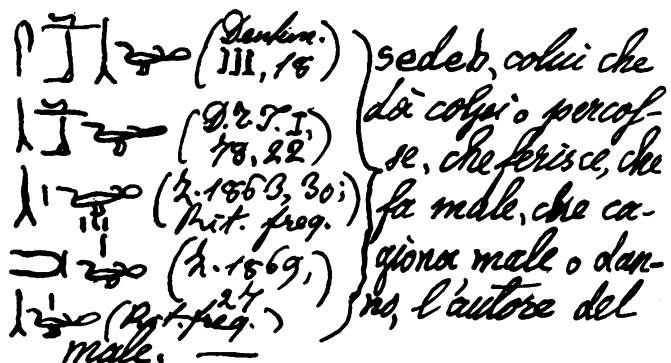 (Denkm. III, 18)
(D. Z. T. I, 78, 22)
(Z. 1863, 30; Rit. freq.
(Z. 1869, 27
(Rit. freq.)
sedeb, colui che
dà colpi o percos-
se, che ferisce, che
fa male, che ca-
giona male o dan-
no, l'autore del
male. —